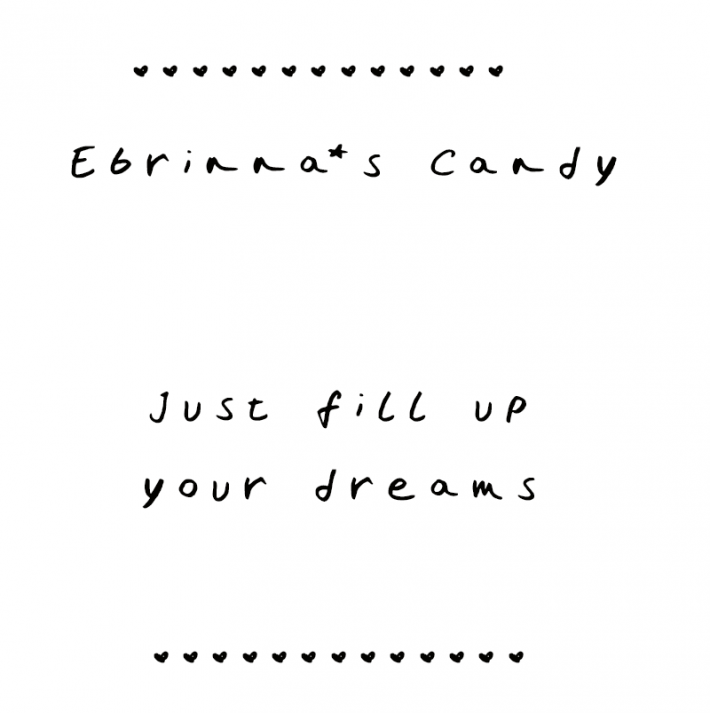 Ebrinna*s Candy
Just fill up
your dreams